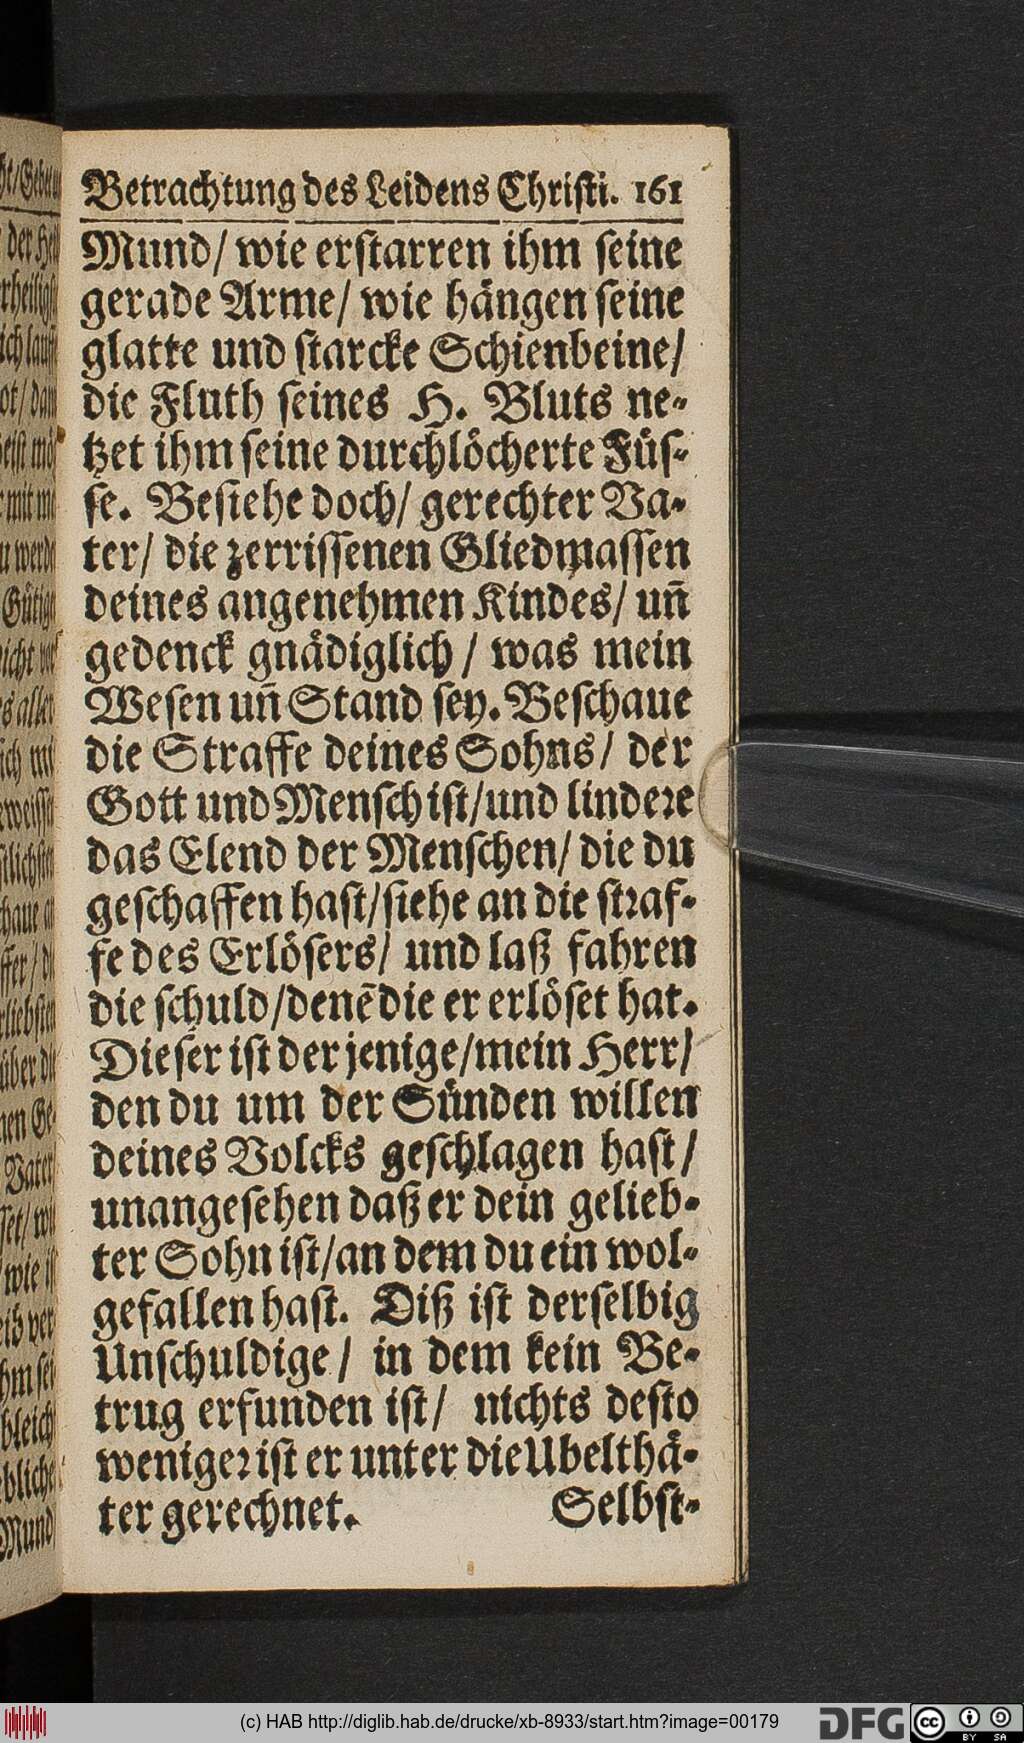 Betrachtung des Leidens Christi. 161
Mund/ wie erstarren ihm seine
gerade Arme/ wie hängen seine
glatte und starcke Schienbeine/
die Fluth seines H. Bluts ne-
tzet ihm seine durchlöcherte Füs-
se. Besiehe doch/ gerechter Va-
ter/ die zerrissenen Gliedmassen
deines angenehmen Kindes/ un̄
gedenck gnädiglich/ was mein
Wesen un̄ Stand sey. Beschaue
die Straffe deines Sohns/ der
Gott und Mensch ist/und lindere
das Elend der Menschen/ die du
geschaffen hast/siehe an die straf-
fe des Erlösers/ und laß fahren
die schuld/denē die er erlöset hat.
Dieser ist der jenige/mein Herr/
den du um der Sünden willen
deines Volcks geschlagen hast/
unangesehen daß er dein gelieb-
ter Sohn ist/an dem du ein wol-
gefallen hast. Diß ist derselbig
Unschuldige/ in dem kein Be-
trug erfunden ist/ nichts desto
weniger ist er unter die Ubelthä-
ter gerechnet. Selbst-
(c) HAB http://diglib.hab.de/drucke/xb-8933/start.htm?image=00179
DFG cc BY SA